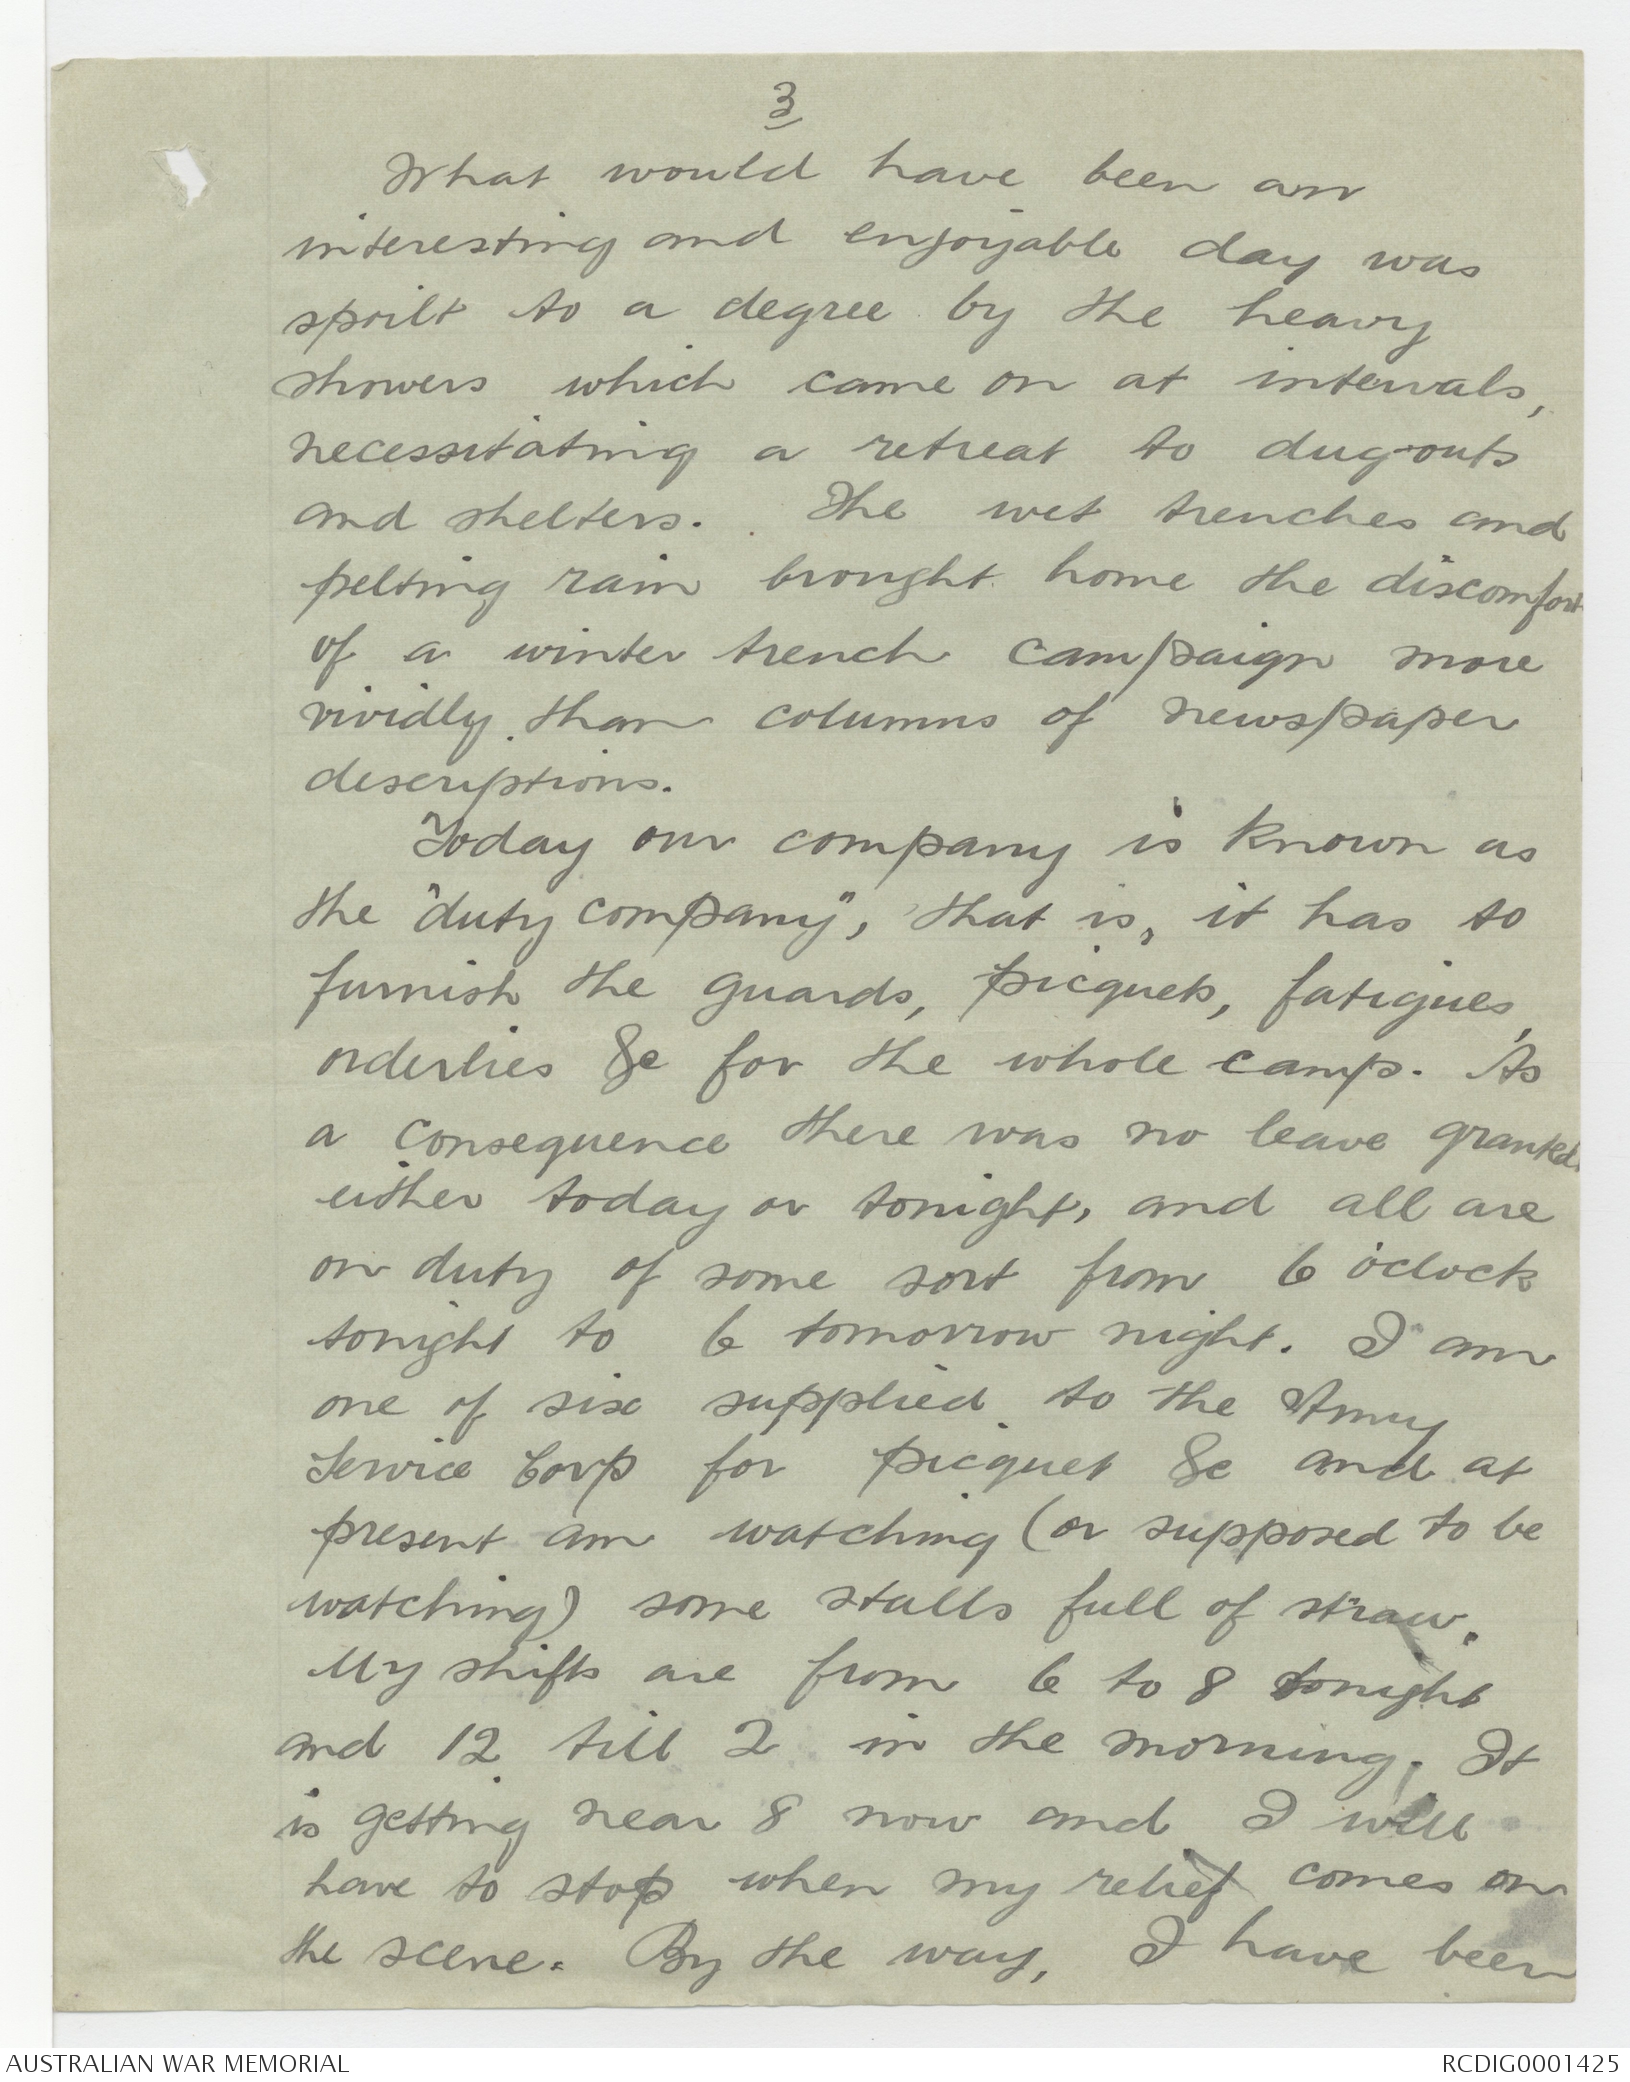 3
What would have been an
interesting and enjoyable day was
spoilt to a degree by the heavy
showers which came on at intervals,
necessitating a retreat to dug-outs
and shelters. The wet trenches and
pelting rain brought home the discomfort
of a winter trench campaign more
vividly than columns of newspaper
descriptions.
Today our company is known as
the "duty company", that is, it has to
furnish the guards, picquets, fatigues,
orderlies &c for the whole camp. As
a consequence there was no leave granted
either today or tonight, and all are
on duty of some sort from 6 o'clock
tonight to 6 tomorrow night. I am
one of six supplied to the Army
Service Corp for picquet &c and at
present am watching (or supposed to be
watching) some stalls full of straw.
My shifts are from 6 to 8 tonight
and 12 till 2 in the morning. It
is getting near 8 now and I will
have to stop when my relief comes on
the scene. By the way, I have been
AUSTRALIAN WAR MEMORIAL
RCDIG0001425